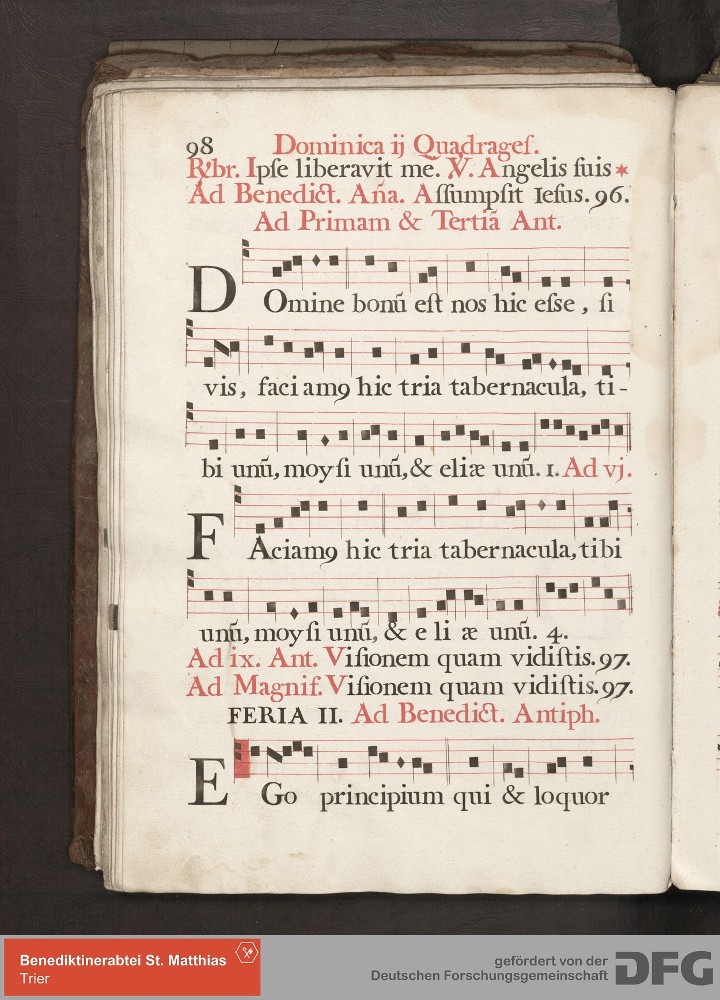 98 Dominica ij Quadrages.
R/br. Ipse liberavit me. V. Angelis suis *
Ad Benedict. Aña. Assumpsit Iesus. 96.
Ad Primam & Tertiã Ant.
DOmine bonũ est nos hic esse, si
vis, faciamꝰ hic tria tabernacula, ti-
bi unũ, moysi unũ, & eliæ unũ. 1. Ad vj.
FAciamꝰ hic tria tabernacula, tibi
unũ, moysi unũ, & e li æ unũ. 4.
Ad ix. Ant. Visionem quam vidistis. 97.
Ad Magnif. Visionem quam vidistis. 97.
FERIA II. Ad Benedict. Antiph.
EGo principium qui & loquor
Benediktinerabtei St. Matthias
Trier
gefördert von der
Deutschen Forschungsgemeinschaft
DFG